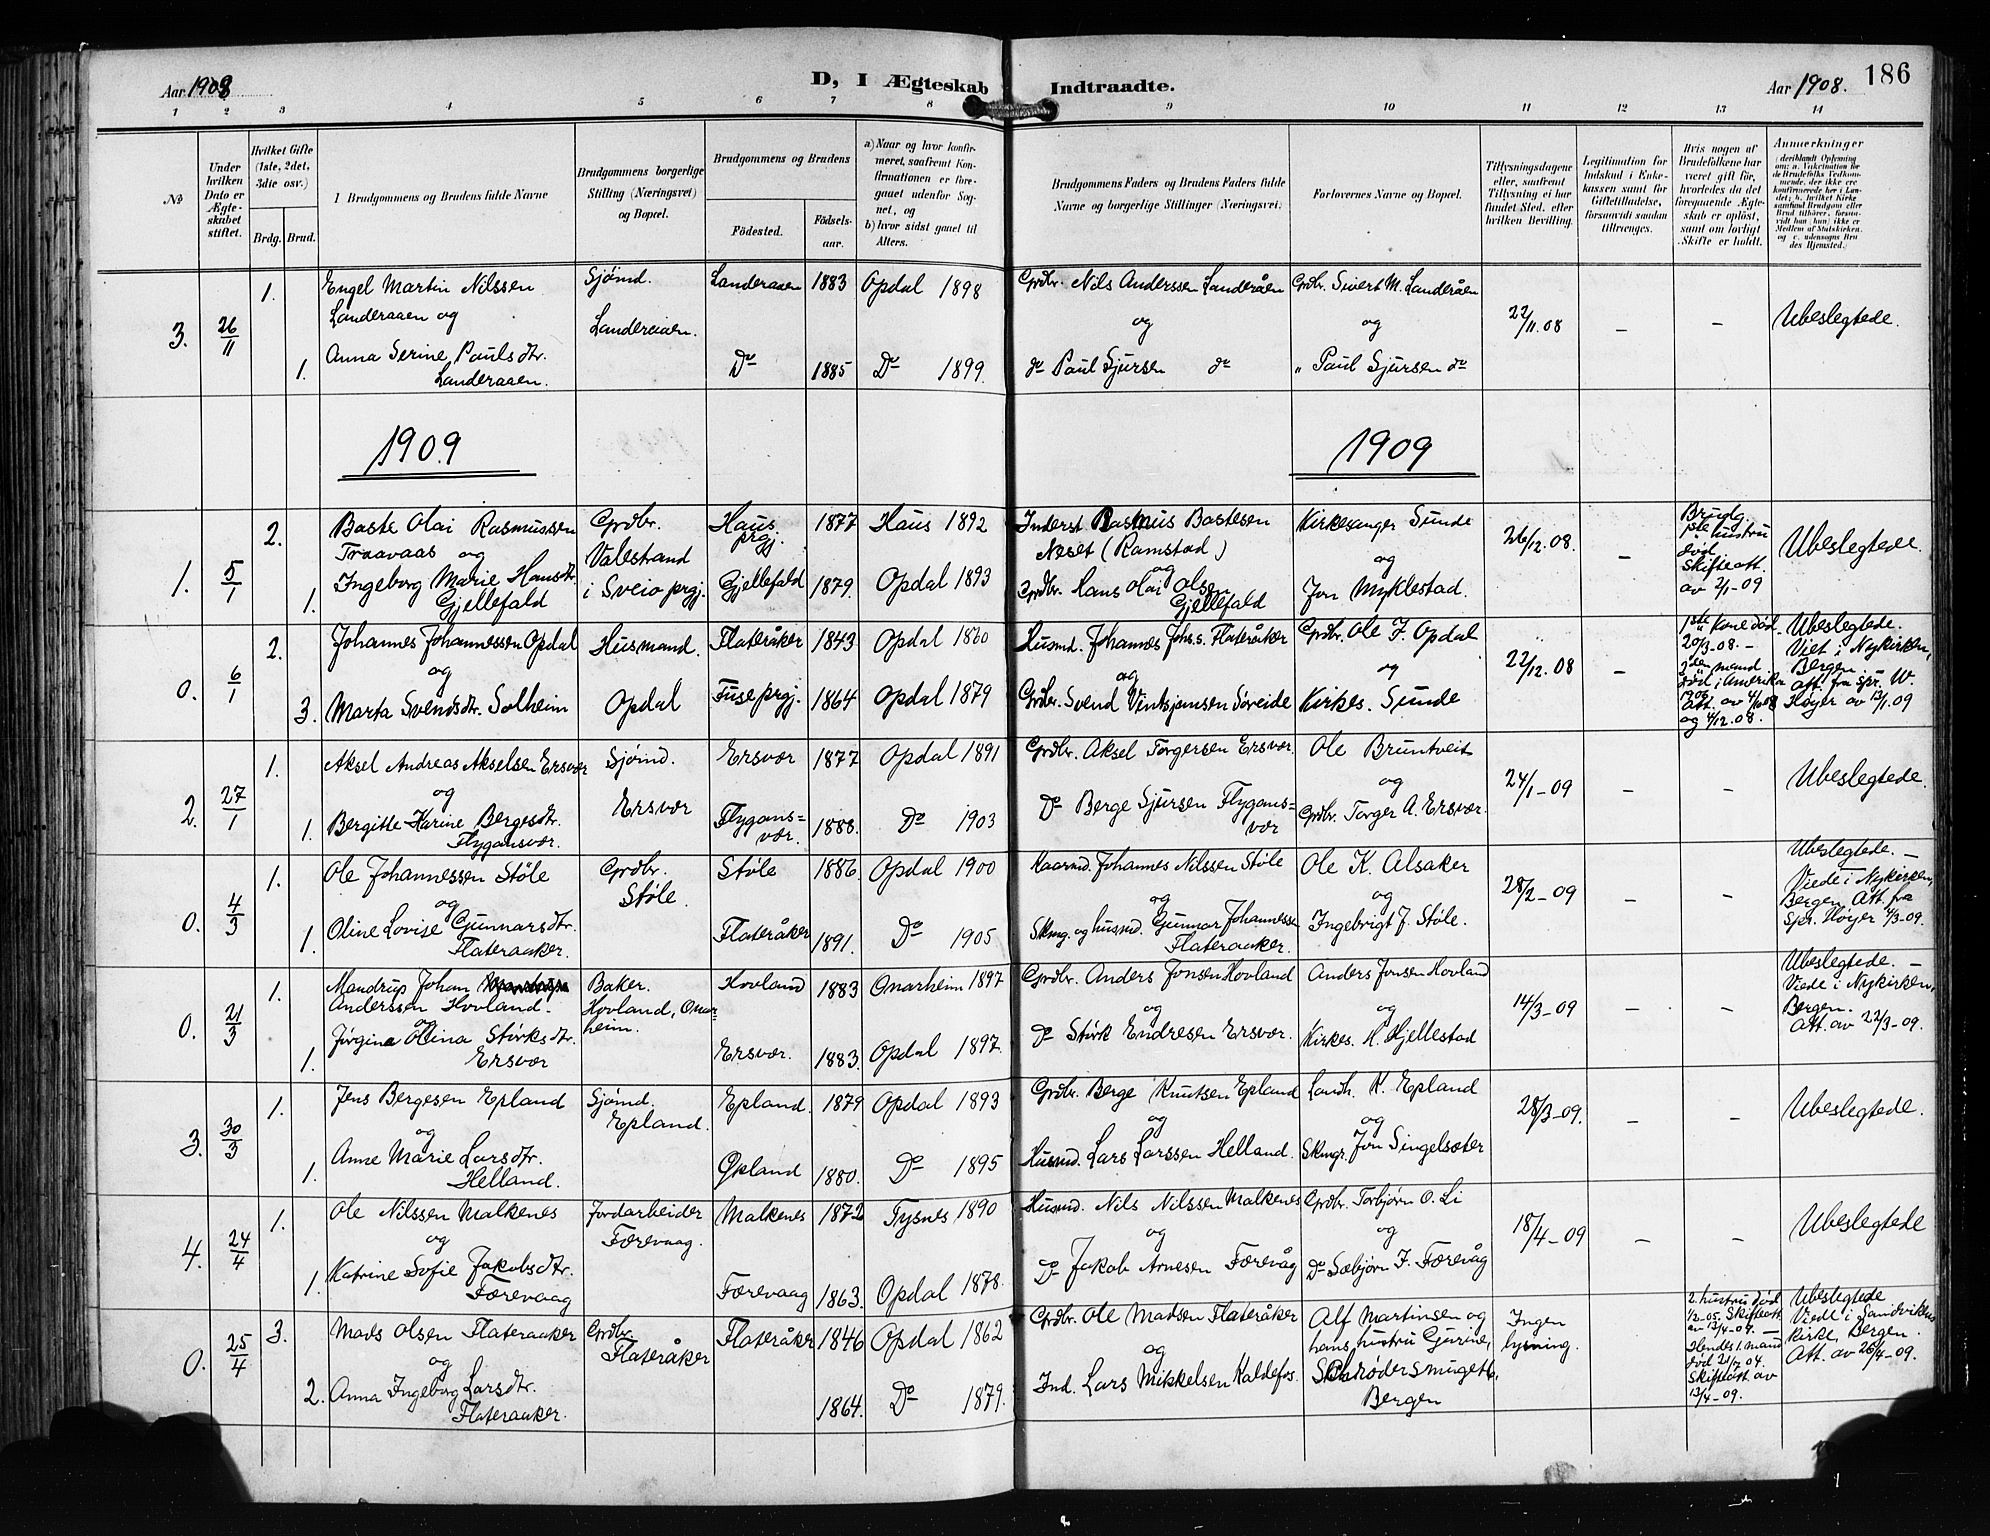 Aar 1908
D, I Ægteskab Indtraadte.
Aar 1908. 186
1 2 3 4 5 6 7 8 9 10 11 12 13 14
No
Under hvilken Dato er Ægteskabet stiftet.
Hvilket Gifte (1ste, 2det, 3die osv.)
Brdg. Brud.
I Brudgommens og Brudens fulde Navne
Brudgommens borgerlige Stilling (Næringsvei) og Bopæl.
Brudgommens og Brudens
Fødested. Fødselsaar.
a) Naar og hvor konfirmeret, saafremt Konfirmationen er foregaaet udenfor Sognet, og
b) hvor sidst gaaet til Alters.
Brudgommens Faders og Brudens Faders fulde Navne og borgerlige Stillinger (Næringsvei)
Forlovernes Navne og Bopæl.
Tillysningsdagene eller, saafremt Tillysning ei har fundet Sted, efter hvilken Bevilling.
Legitimation for Indskud i Enkekassen samt for Giftetilladelse, forsaavidt saadan tiltrænges.
Hvis nogen af Brudefolkene har været gift før, hvorledes da det foregaaende Ægteskab er opløst, samt om lovligt Skifte er holdt.
Anmærkninger
3. 26/11 1. Engel Martin Nilssen Landeraaen og
1. Anna Serine Paulsdtr. Landeraaen.
Sjømd. Landeraaen.
Landeraaen 1883 Opdal 1898
Do 1885 Do 1899.
Grdbr. Nils Anderssen Landeråen
og
do Paul Sjursen do
Grdbr. Sivert M. Landeråen
og
" Paul Sjursen do
22/11.08 - - Ubeslegtede.
1909
1909
1. 5/1 2. Baste Olai Rasmussen Traavaas og
1. Ingeborg Marie Hansdtr. Gjellefald
Grdbr. Valestrand i Sveio prgj.
Haus prgj. 1877 Haus 1892
Gjellefald 1879. Opdal 1893
Inderst Rasmus Bastesen Neset (Ramstad)
og
Grdbr. Hans Olai Olsen Gjellefald
Kirkesanger Sunde
og
Jon Myklestad.
26/12.08. -
Brudg. 1ste hustru død Skifteatt. av 2/1-09
Ubeslegtede.
0. 6/1 2. Johannes Johannessen Opdal
og
3. Marta Svendsdtr. Solheim
Husmand. Opdal
Flateråker 1843 Opdal 1860
Fuse prgj. 1864 Opdal 1879
Husmd. Johannes Johs.s. Flateråker
og
Grdbr. Svend Vintsjansen Søreide
Grdbr. Ole J. Opdal
og
Kirkes. Sunde
22/12.08 -
1ste Kone død 20/3-08. - 2den mand død i Amerika 1906 Att. av 4/1008 og 4/12.08.
Ubeslegtede. Viet i Nykirken, Bergen. Att. fra Spr. W. Høyer av 13/1.09
2. 27/1 1. Aksel Andreas Akselsen Ersvær
og
1. Bergitte Karine Bergesdtr. Flygansvær.
Sjømd. Ersvær
Ersvær 1877 Opdal 1891
Flygans=vær. 1888. Do 1903
Grdbr. Aksel Torgersen Ersvær.
Do Berge Sjursen Flygans=vær
Ole Bruntveit
og
Grdbr. Torger A. Ersvær.
24/1-09 - - Ubeslegtede.
0. 4/3 1. Ole Johannessen Støle
og
1. Oline Lovise Gunnarsdtr. Flateraaker.
Grdbr. Støle.
Støle 1886. Opdal 1900
Flateråker 1891. Do 1905
Kaarmd. Johannes Nilssen Støle
og
Skmg. og husmd. Gunnar Johannessen Flateraaker.
Ole K. Alsaker
og
Ingebrigt J. Støle.
28/2-09 - -
Ubeslegtede. - Viede i Nykirken, Bergen Att. fra Spr. Høyer 4/3-09.
0. 21/3 1. Mandrup Johan Anderssen Hovland.
og
1. Jørgine Olina Størksdtr. Ersvær
Baker. Hovland, Onarheim.
Hovland 1883 Onarheim 1897
Ersvær. 1883. Opdal 1897.
Grdbr. Anders Jonsen Hovland
og
Do Størk Endresen Ersvær.
Anders Jonsen Hovland
og
Kirkes. H. Hjellestad
14/3-09 - -
Ubeslegtede. - Viede i Nykirken, Bergen. Att. av 22/3-09.
3. 30/3 1. Jens Bergesen Epland
og
1. Anne Marie Larsdtr. Helland.
Sjømd. Epland.
Epland. 1879 Opdal 1893
Øpland 1880. Do 1895
Grdbr. Berge Knutsen Epland
og
Husmd. Lars Larssen Helland.
Landh. K. Epland
og
Skmgr. Jon Singelsæter
28/3-09. - - Ubeslegtede.
4. 24/4 1. Ole Nilssen Malkenes
og
1. Katrine Sofie Jakobsdtr. Færevaag
Jordarbeider Færevaag.
Malkenes 1872 Tysnes 1890
Færevaag 1863. Opdal 1878.
Husmd. Nils Nilssen Malkenes
og
Do Jakob Arnesen Færevåg
Grdbr. Torbjørn O. Li
og
Do Sæbjørn J. Færevåg
18/4-09 - - Ubeslegtede
0. 25/4 3. Mads Olsen Flateraaker
og
2. Anna Ingeborg Larsdtr. Flateraaker.
Grdbr. Flateråker
Flateråker 1846 Opdal 1862
1864. Do 1879.
Grdbr. Ole Madsen Flateråker
og
Ind. Lars Mikkelsen Kaldefos.
Alf Martinsen og hans hustru Gurine, Bergen
Ingen lysning.
2. hustru død 1/2-05. Skifteatt av 13/4-09. - Hendes 1. mand død 21/7 04. Skifteatt av 13/4-09.
Ubeslegtede Viede i Sandvikens kirke, Bergen. Att. av 26/4-09.